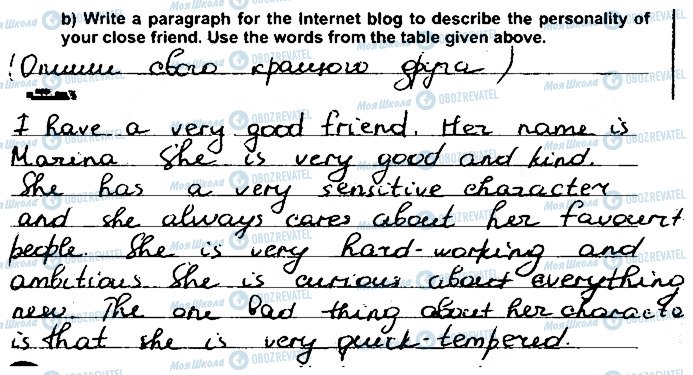 b) Write a paragraph for the Internet blog to describe the personality of
your close friend. Use the words from the table given above.
(Опиши свого кращого друга)
I have a very good friend. Her name is
Marina She is very good and kind.
She has a very sensitive character
and she always cares about her favourt
people. She is very hard-working and
ambitious. She is curious about everything
new. The one bad thing about her characte
is that she is very quick-tempered.